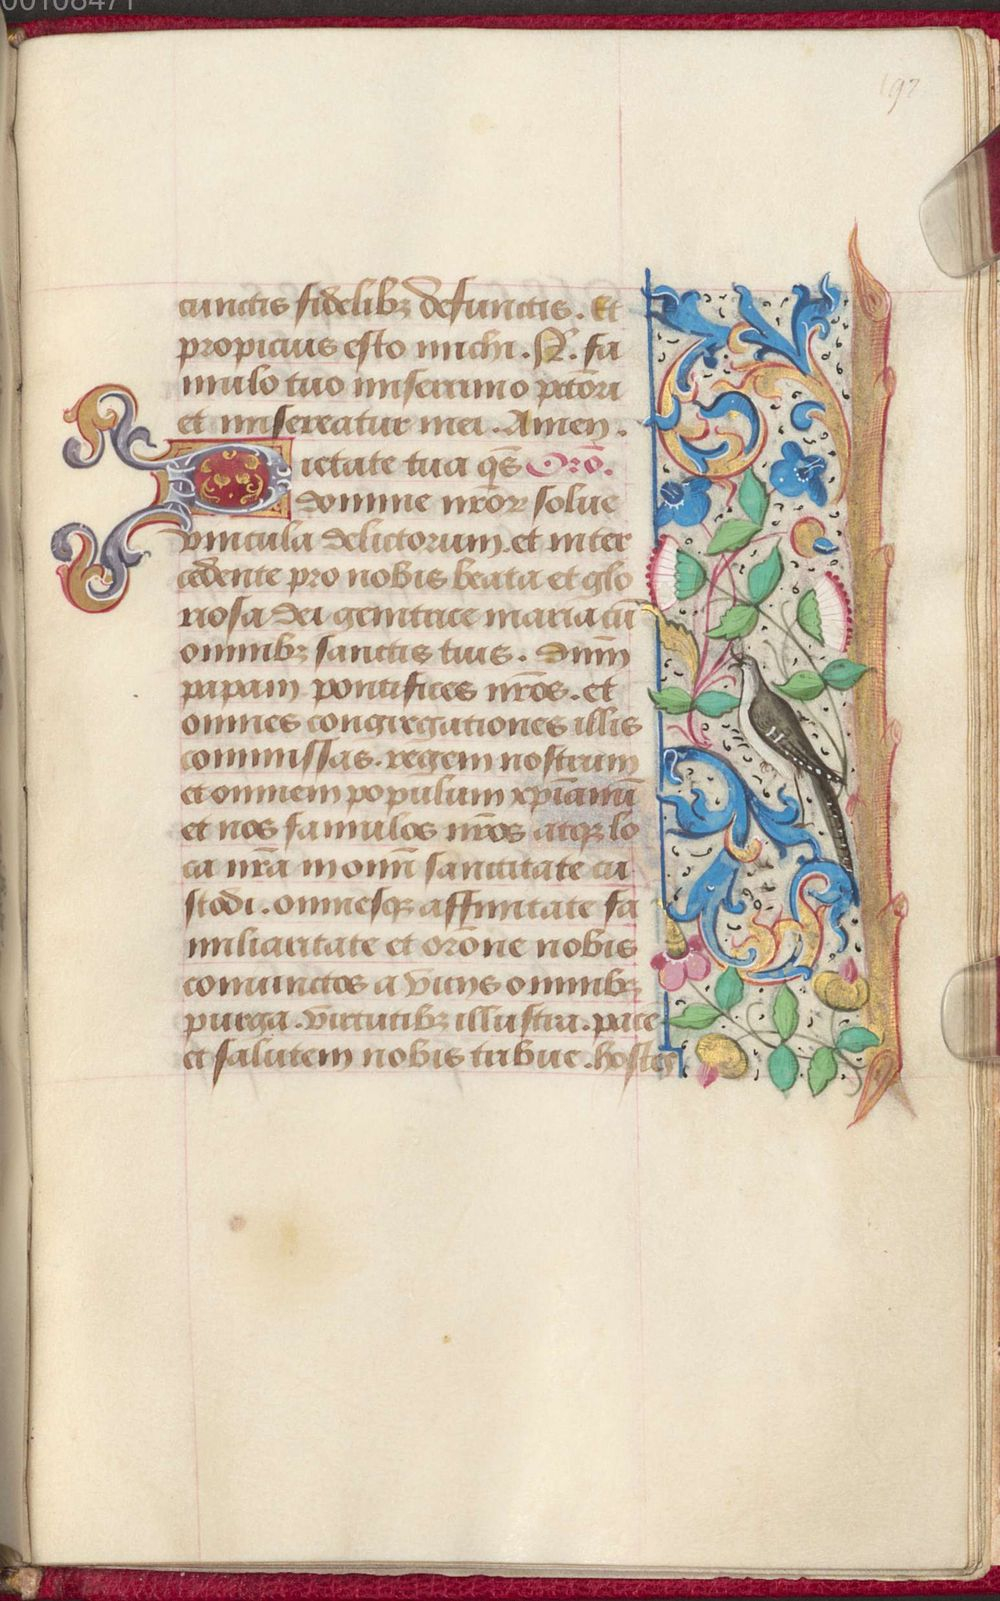 00108471
197
cunctis fidelibꝫ defunctis. Et
propicius esto michi. N. fa
mulo tuo miserrimo pctōri
et misereatur mei. Amen.
Pietate tua qs̄ Orō.
domine nr̄oꝝ solue
vincula delictorum. et inter
cedente pro nobis beata et glo
riosa dei genitrice maria cū
omnibꝫ sanctis tuis. Dnm̄
papam pontifices nr̄os. et
omnes congregationes illis
commissas. regem nostrum
et omnem populum xp̄ianū
et nos famulos nr̄os atqꝫ lo
ca nr̄a in omī sanctitate cu
stodi. omnesqꝫ affinitate fa
miliaritate et orōne nobis
coniunctos a vicijs omnibꝫ
purga. virtutibꝫ illustra. pacē
et salutem nobis tribue. hostes